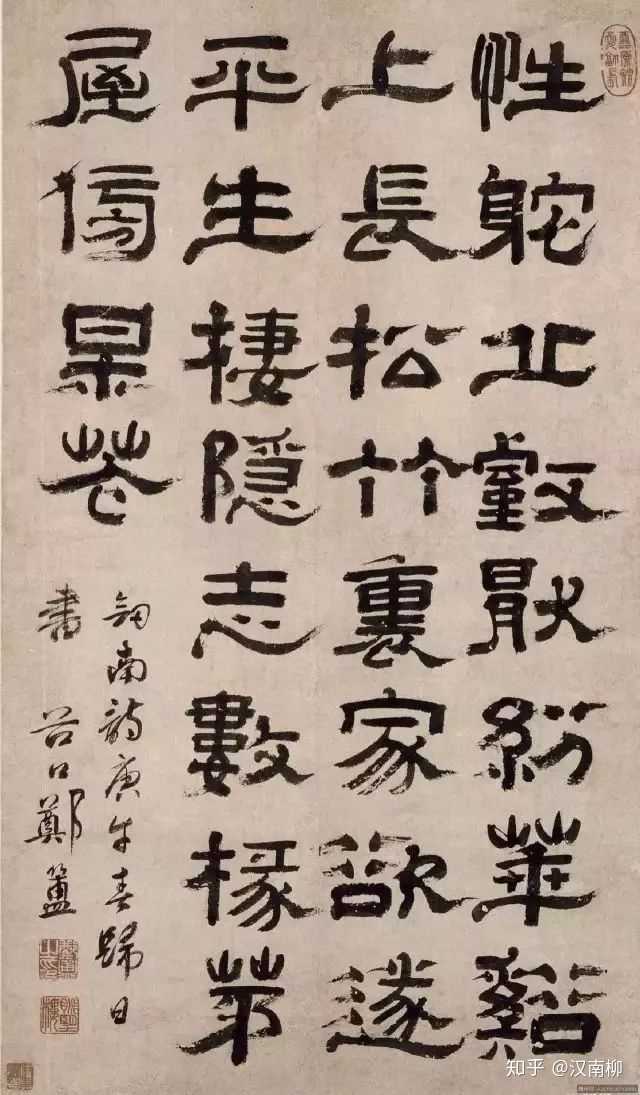 性躭丘壑厭紛華谿
上長松竹裏家欲遂
平生棲隱志數椽茅
屋傍某花
劒南詩庚午春歸日
書 谷口鄭簠
知乎 @汉南柳